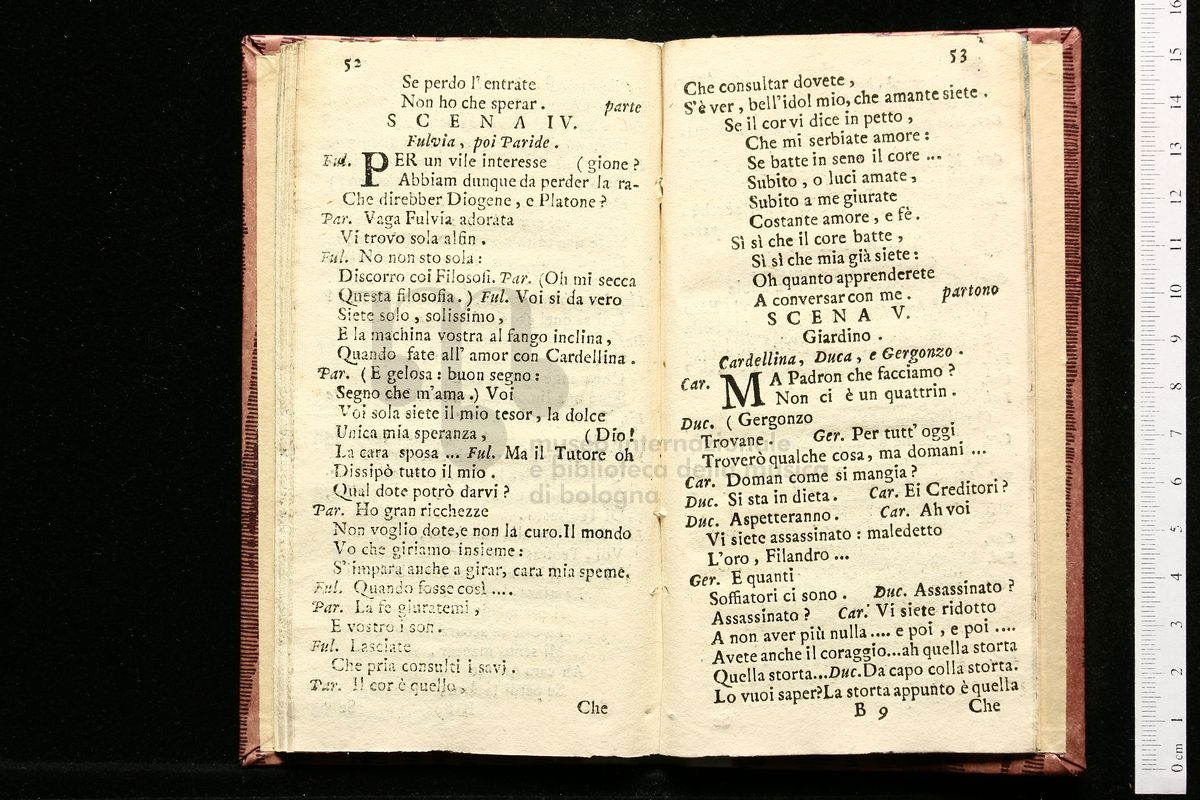 52
Se perdo l' entrate
Non ho che sperar. parte
SCENA IV.
Fulvia, poi Paride.
Ful. PER un vile interesse (gione?
Abbiam dunque da perder la ra-
Che direbber Diogene, e Platone?
Par. Vaga Fulvia adorata
Vi trovo sola alfin.
Ful. No non sto sola:
Discorro coi Filosofi. Par. (Oh mi secca
Questa filosofia.) Ful. Voi si da vero
Siete solo, solissimo,
E la machina vostra al fango inclina,
Quando fate all' amor con Cardellina.
Par. (E gelosa: buon segno:
Segno che m'ama.) Voi
Voi sola siete il mio tesor, la dolce
Unica mia speranza, (Dio!
La cara sposa ... Ful. Ma il Tutore oh
Dissipò tutto il mio.
Qual dote potrò darvi?
Par. Ho gran ricchezze
Non voglio dote,e non la curo.Il mondo
Vo che giriamo insieme:
S' impara anche a girar, cara mia speme.
Ful. Quando fosse così ....
Par. La fe giuratemi,
E vostro i son.
Ful. Lasciate
Che pria consulti i savj.
Par. Il cor è quello,
Che
53
Che consultar dovete,
S'è ver, bell'idol mio, che amante siete.
Se il cor vi dice in petto,
Che mi serbiate amore:
Se batte in seno il core ...
Subito, o luci amate,
Subito a me giurate
Costante amore, e fè.
Sì sì che il core batte,
Sì sì che mia già siete:
Oh quanto apprenderete
A conversar con me. partono
SCENA V.
Giardino.
Cardellina, Duca, e Gergonzo.
Car. MA Padron che facciamo?
Non ci è un quattrin.
Duc. (Gergonzo
Trovane. Ger. Per tutt' oggi
Troverò qualche cosa, ma domani ...
Car. Doman come si mangia?
Duc. Si sta in dieta. Car. Ei Creditori?
Duc. Aspetteranno. Car. Ah voi
Vi siete assassinato: maledetto
L'oro, Filandro ...
Ger. E quanti
Soffiatori ci sono. Duc. Assassinato?
Assassinato? Car. Vi siete ridotto
A non aver più nulla .... e poi, e poi ....
Avete anche il coraggio...ah quella storta
Quella storta...Duc.Da capo colla storta.
Lo vuoi saper?La storta appunto è quella
B 9 Che
museo internazionale
e biblioteca della musica
di bologna
0 cm 1 2 3 4 5 6 7 8 9 10 11 12 13 14 15 16